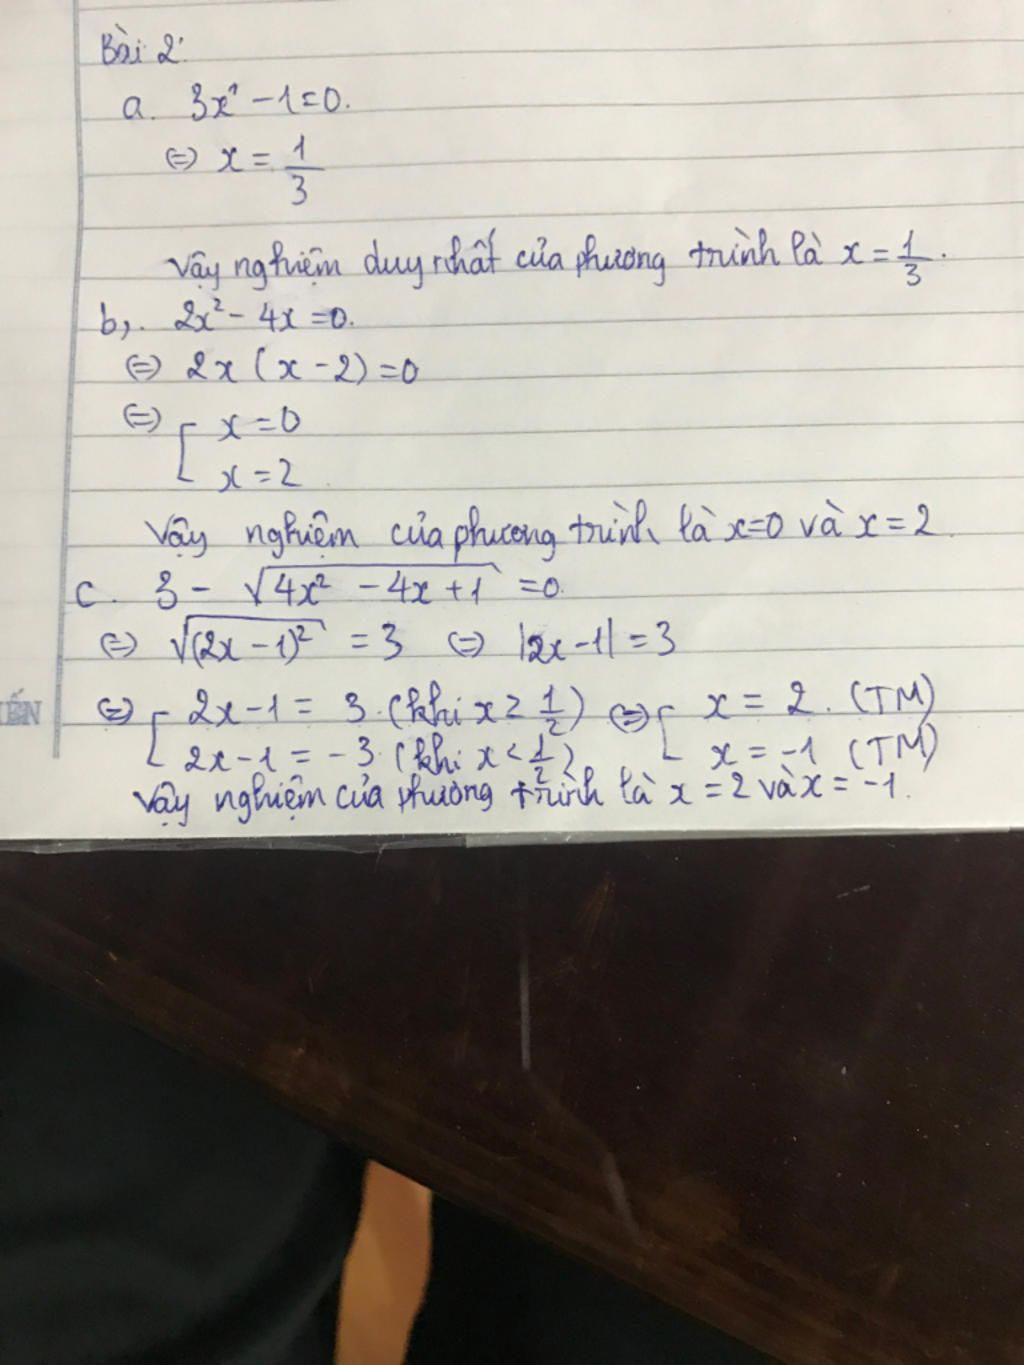 Bài 2:
a. 3x¹ - 1 = 0.
⇔ x = 1/3
Vậy nghiệm duy nhất của phương trình là x = 1/3.
b,. 2x² - 4x = 0.
⇔ 2x (x - 2) = 0
⇔ [ x = 0
x = 2
Vậy nghiệm của phương trình là x=0 và x = 2.
c. 3 - √(4x² - 4x + 1) = 0.
⇔ √((2x - 1)²) = 3 ⇔ |2x - 1| = 3
⇔ [ 2x - 1 = 3. (khi x ≥ 1/2) ⇔ [ x = 2. (TM)
2x - 1 = -3. (khi x < 1/2) x = -1 (TM)
Vậy nghiệm của phương trình là x = 2 và x = -1.